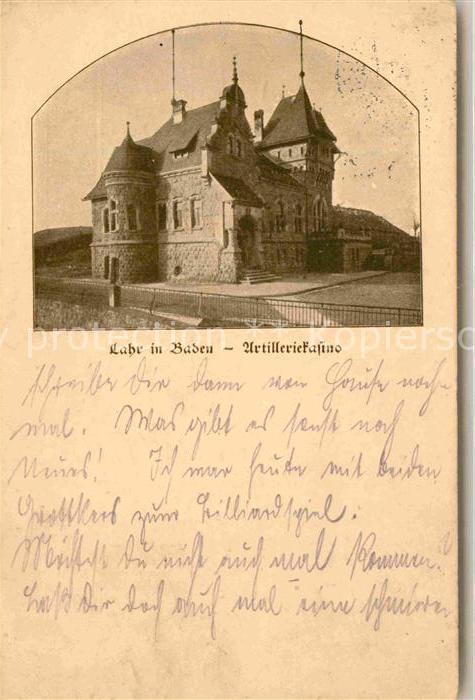 Lahr in Baden – Artilleriekasino
schreibe Dir dann von Hause noch-
mal. Was gibt es sonst noch
Neues! Ich war heute mit beiden
zum Billiardspiel.
Möchtest Du nicht auch mal kommen?
Laß Dir doch auch mal eine schmieren